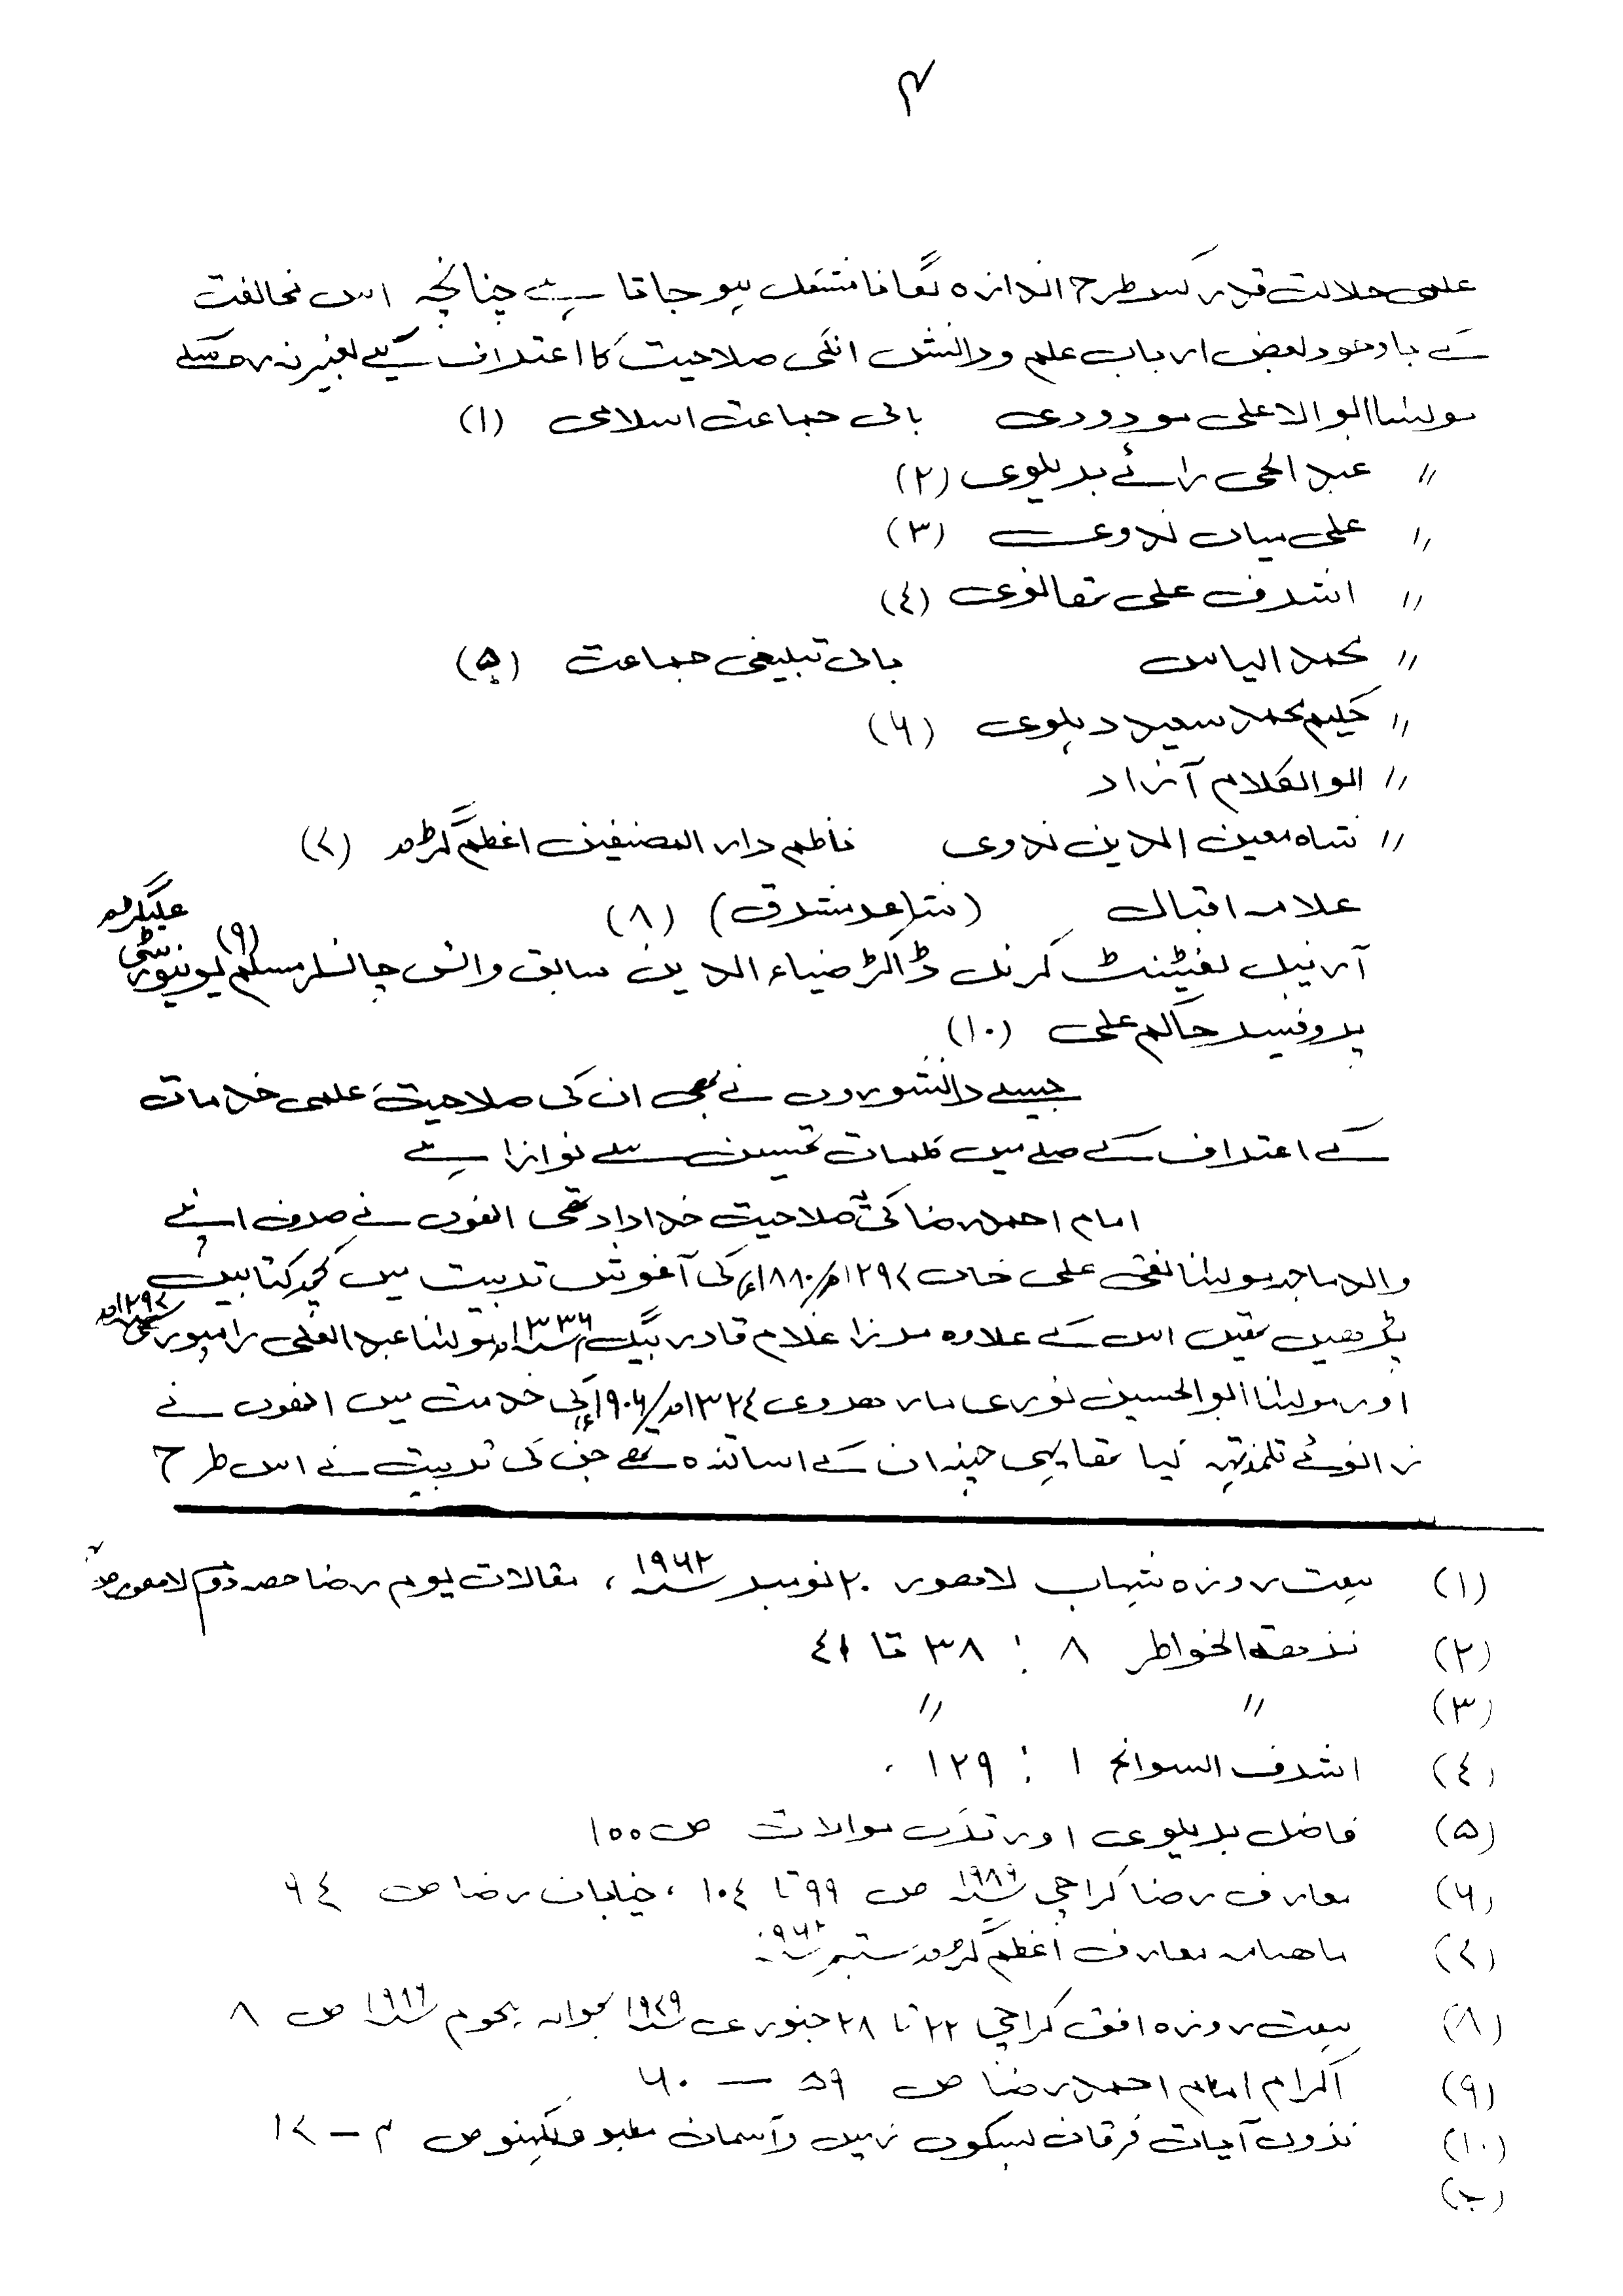 ۴
علمی جلالت قدر کس طرح اندازہ لگانا مشکل ہو جاتا ہے چنانچہ اس مخالفت
کے باوجود بعض ارباب علم و دانش انکی صلاحیت کا اعتراف کیے بغیر نہ رہ سکے
مولٰنا ابوالاعلی مودودی بانی جماعت اسلامی (۱)
〃 عبدالحی رائے بریلوی (۲)
〃 علی میاں ندوی (۳)
〃 اشرف علی تھانوی (٤)
〃 محمد الیاس بانی تبلیغی جماعت (۵)
〃 حکیم محمد سعید دہلوی (۶)
〃 ابوالکلام آزاد
〃 شاہ معین الدین ندوی ناظم دار المصنفین اعظم گڑھ (۷)
علامہ اقبال (شاعر مشرق) (۸)
آنریبل لفٹیننٹ کرنل ڈاکڑ ضیاء الدین سابق وائس چانسلر مسلم یونیورسٹی علیگڑھ (۹)
پروفیسر حاکم علی (۱۰)
جیسے دانشوروں نے بھی ان کی صلاحیت علمی خدمات
کے اعتراف کے صلے میں کلمات تحسین سے نوازا ہے
امام احمد رضا کی یہ صلاحیت خداداد تھی انھوں نے صرف اپنے
والد ماجد مولانا نقی علی خاں ۱۲۹۷ھ/۱۸۸۰ء کی آغوش تربیت میں کچھ کتابیں
پڑھیں تھیں اس کے علاوہ مرزا غلام قادر بیگ ۱۳۳۶ھ مولٰنا عبد العلی رامپوری
اور مولانا ابوالحسین نوری مارھروی ۱۳۲٤ھ/۱۹۰۶ء کی خدمت میں انھوں نے
زانوئے تلمذ تہہ کیا تھا یہی چند ان کے اساتذہ تھے جن کی تربیت نے اس طرح
(۱) ہفت روزہ شہاب لاھور ۲۰ نومبر ۱۹۶۲، مقالات یوم رضا حصہ دوم لاھور
(۲) نزھۃ الخواطر ۸ : ۳۸ تا ٤۱
(۳) 〃 〃
(٤) اشرف السوانح ۱ : ۱۲۹
(۵) فاضل بریلوی اور ترک موالات ص ۱۰۰
(۶) معارف رضا کراچی ۱۹۸۶ ص ۹۹ تا ۱۰٤، خیابان رضا ص ٤۶
(۷) ماھنامہ معارف اعظم گڑھ ستمبر
(۸) ہفت روزہ افق کراچی ۲۲ تا ۲۸ جنوری ۱۹۷۹ بحوالہ ہجوم ص ۸
(۹) اکرام امام احمد رضا ص ۵۹ — ۶۰
(۱۰) نزول آیات فرقان بسکون زمین و آسمان مطبوعہ لکھنو ص ۴ - ۱۷